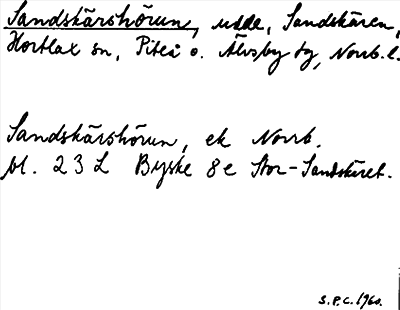 Sandskärshörun, udde, Sandskären,
Hortlax sn, Piteå o. Älvsby tg, Norrb. l.
Sandskärshörun, ek Norrb.
bl. 23 L Byske 8e Stor-Sandskäret.
S.P.C. 1960.